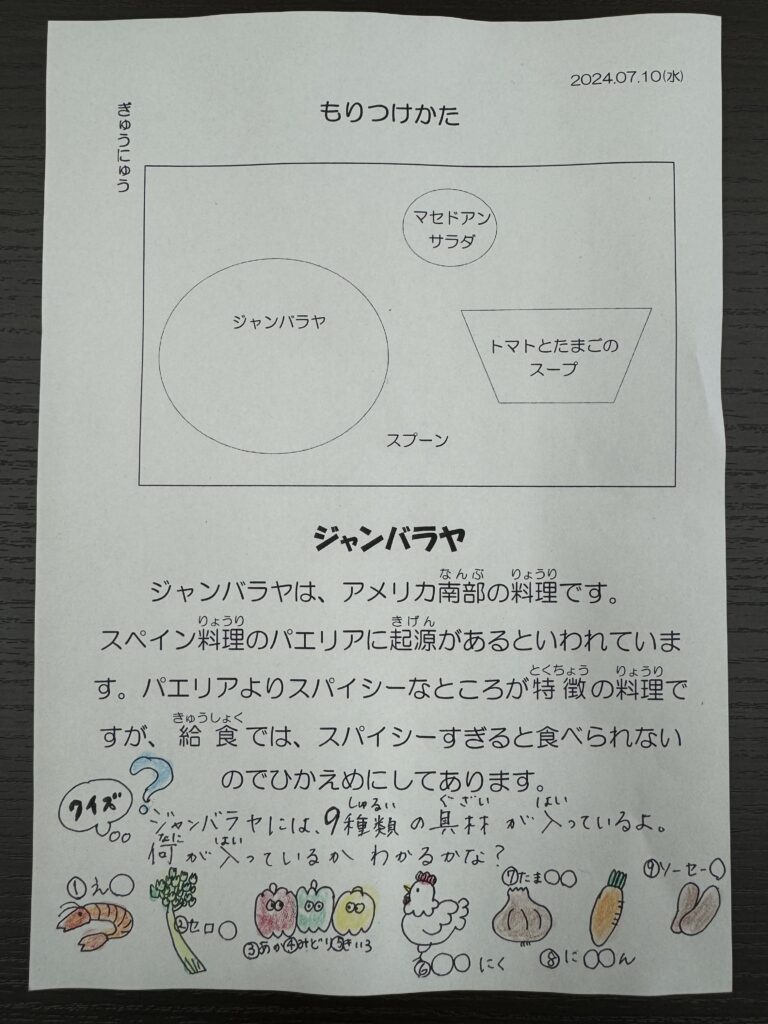 2024.07.10(水)
もりつけかた
ぎゅうにゅう
マセドアン
サラダ
ジャンバラヤ
トマトとたまごの
スープ
スプーン
ジャンバラヤ
なんぶ りょうり
ジャンバラヤは、アメリカ南部の料理です。
りょうり きげん
スペイン料理のパエリアに起源があるといわれていま
とくちょう りょうり
す。パエリアよりスパイシーなところが特徴の料理で
きゅうしょく
すが、給食では、スパイシーすぎると食べられない
のでひかえめにしてあります。
クイズ ?
しゅるい ぐざい はい
ジャンバラヤには、9種類の具材が入っているよ。
なに はい
何が入っているかわかるかな?
①え○
②セロ○
③あか④みどり⑤きいろ
⑥○○にく
⑦たま○○
⑧に○○ん
⑨ソーセー○